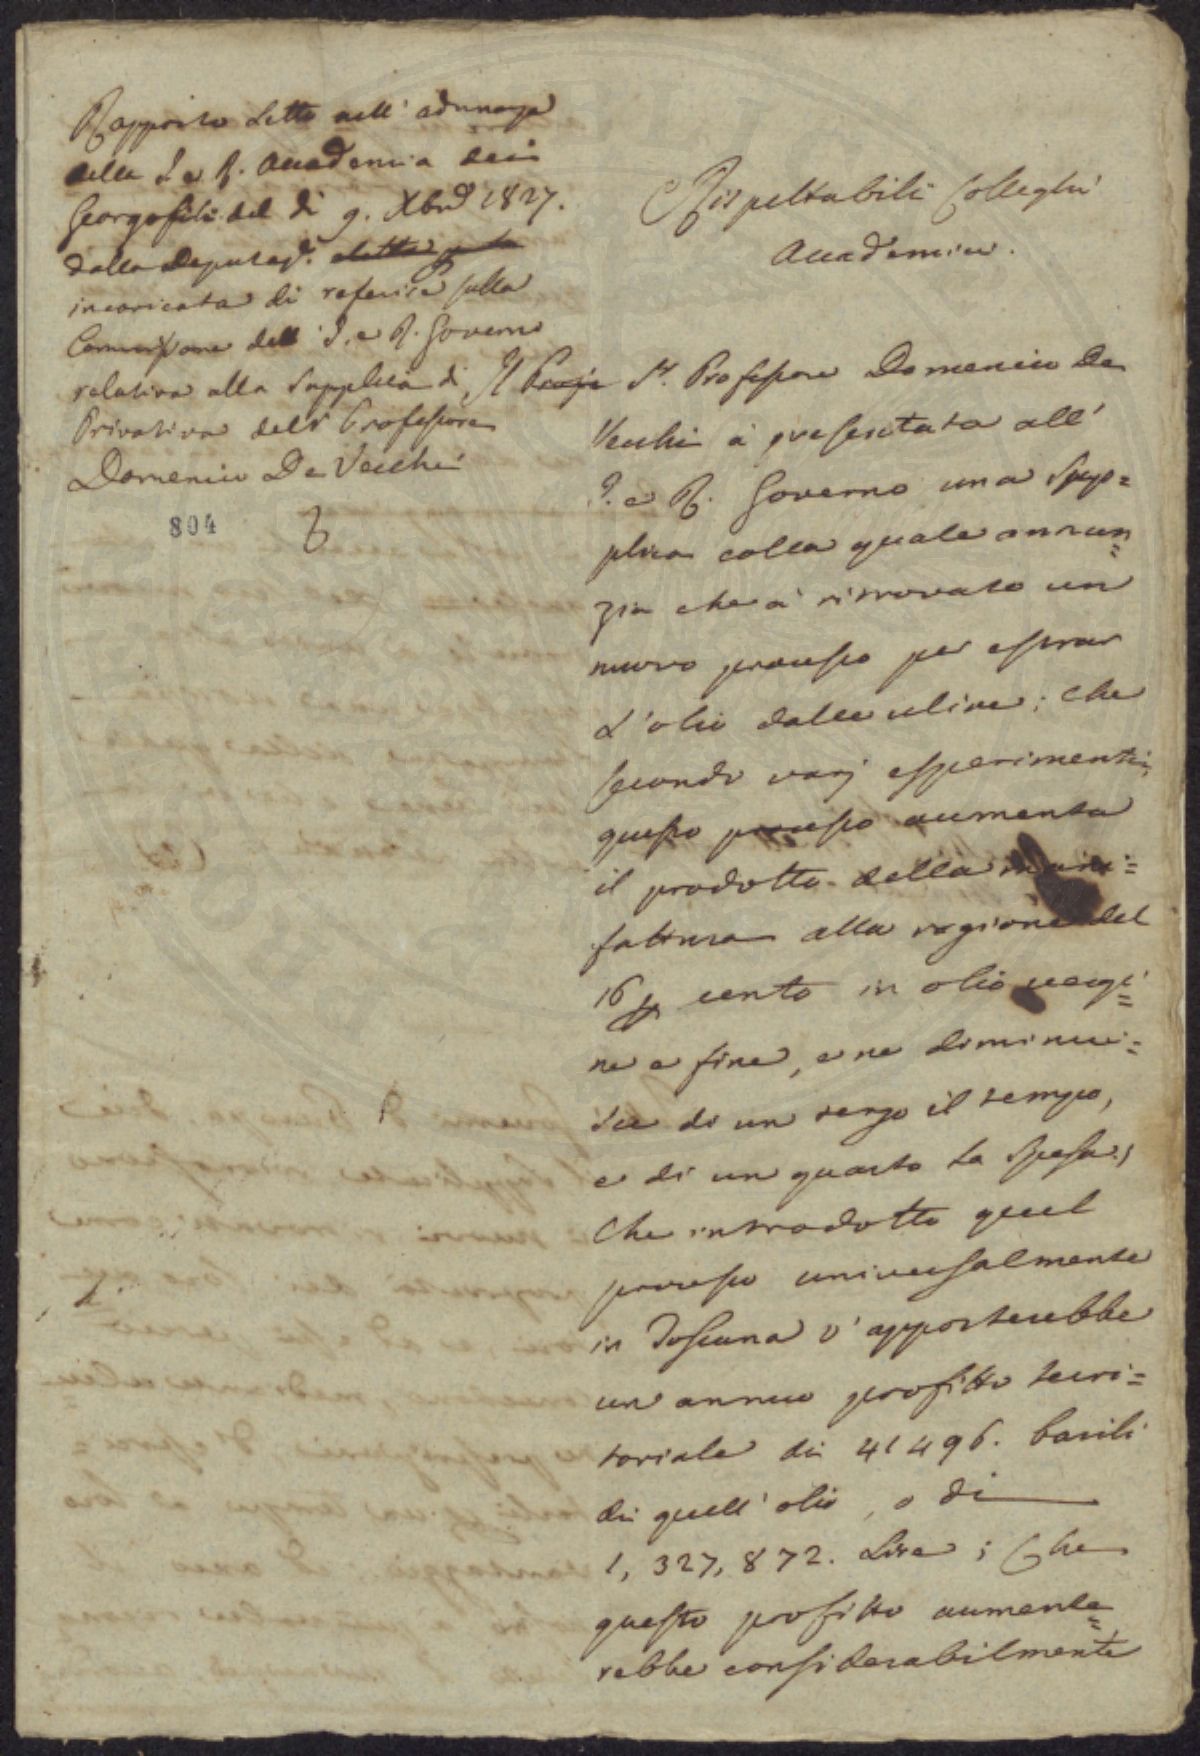 Rapporto letto nell' adunanza
della I. e R. Accademia dei
Georgofili del dì 9. Xbre 1827.
dalla Deputaz.e eletta
incaricata di referire sulla
Comunicazione dell' I. e R. Governo
relativa alla supplica di
Privativa del Sr Professore
Domenico De Vecchi
804
Rispettabili Colleghi
Accademici.
Il Sr. Professore Domenico De
Vecchi à presentata all'
I. e R. Governo una Sup=
plica colla quale annun=
zia che à ritrovato un
nuovo processo per estrar
l'olio dalle ulive; che
secondo varj esperimenti,
questo processo aumenta
il prodotto della mani=
fattura alla ragione del
16 p cento in olio vergi=
ne e fine, e ne diminui=
sce di un terzo il tempo,
e di un quarto la spesa;
Che introdotto quel
processo universalmente
in Toscana v' apporterebbe
un annuo profitto terri=
toriale di 41496. barili
di quell' olio, o di
1,327,872. Lire; Che
questo profitto aumente=
rebbe considerabilmente